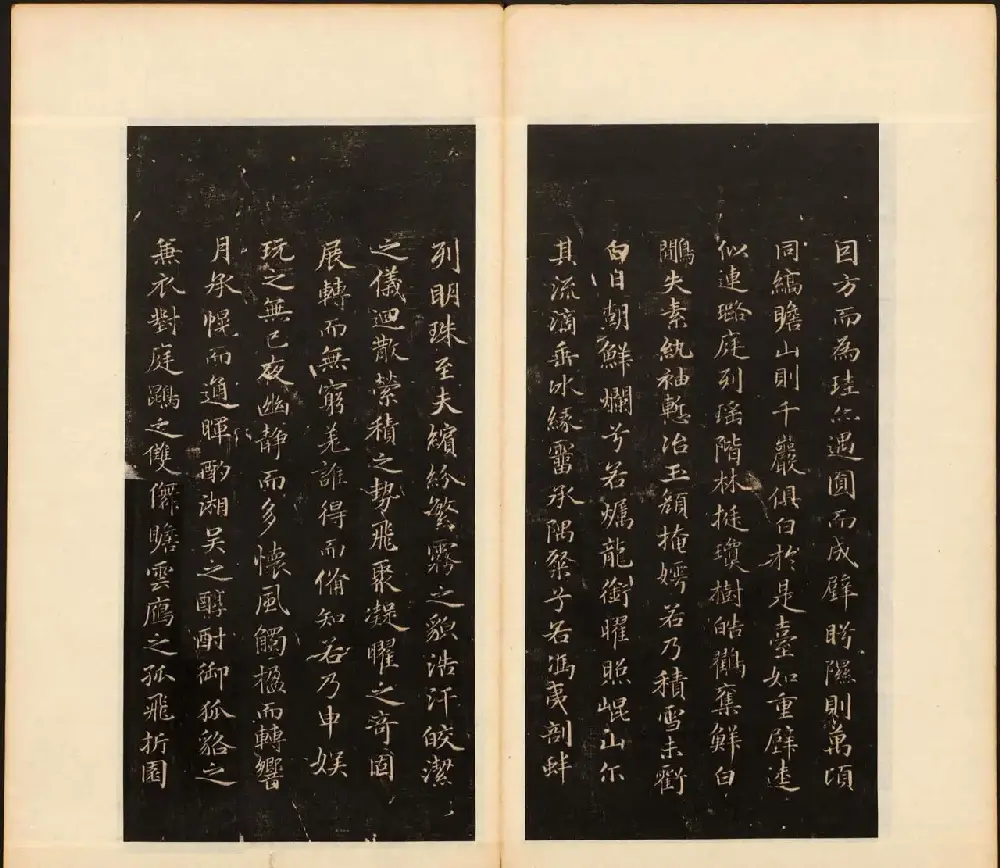 因方而為珪亦遇圓而成璧眄隰則萬頃
同縞瞻山則千巖俱白於是臺如重璧逵
似連璐庭列瑶階林挺瓊樹皓鶴奪鮮白
鷴失素紈袖慙冶玉顏掩嫮若乃積雪未虧
白日朝鮮爛兮若爥龍銜曜照崐山尔
其流滴垂冰緣霤承隅粲兮若馮夷剖蚌
列明珠至夫繽紛繁霧之貌浩汗皎潔
之儀迴散縈積之勢飛聚凝曜之奇固
展轉而無窮羌誰得而俻知若乃申娱
玩之無已夜幽静而多懷風觸楹而轉響
月承幌而通暉酌湘吴之醇酎御狐貉之
兼衣對庭鵾之雙儛瞻雲鴈之孤飛折園